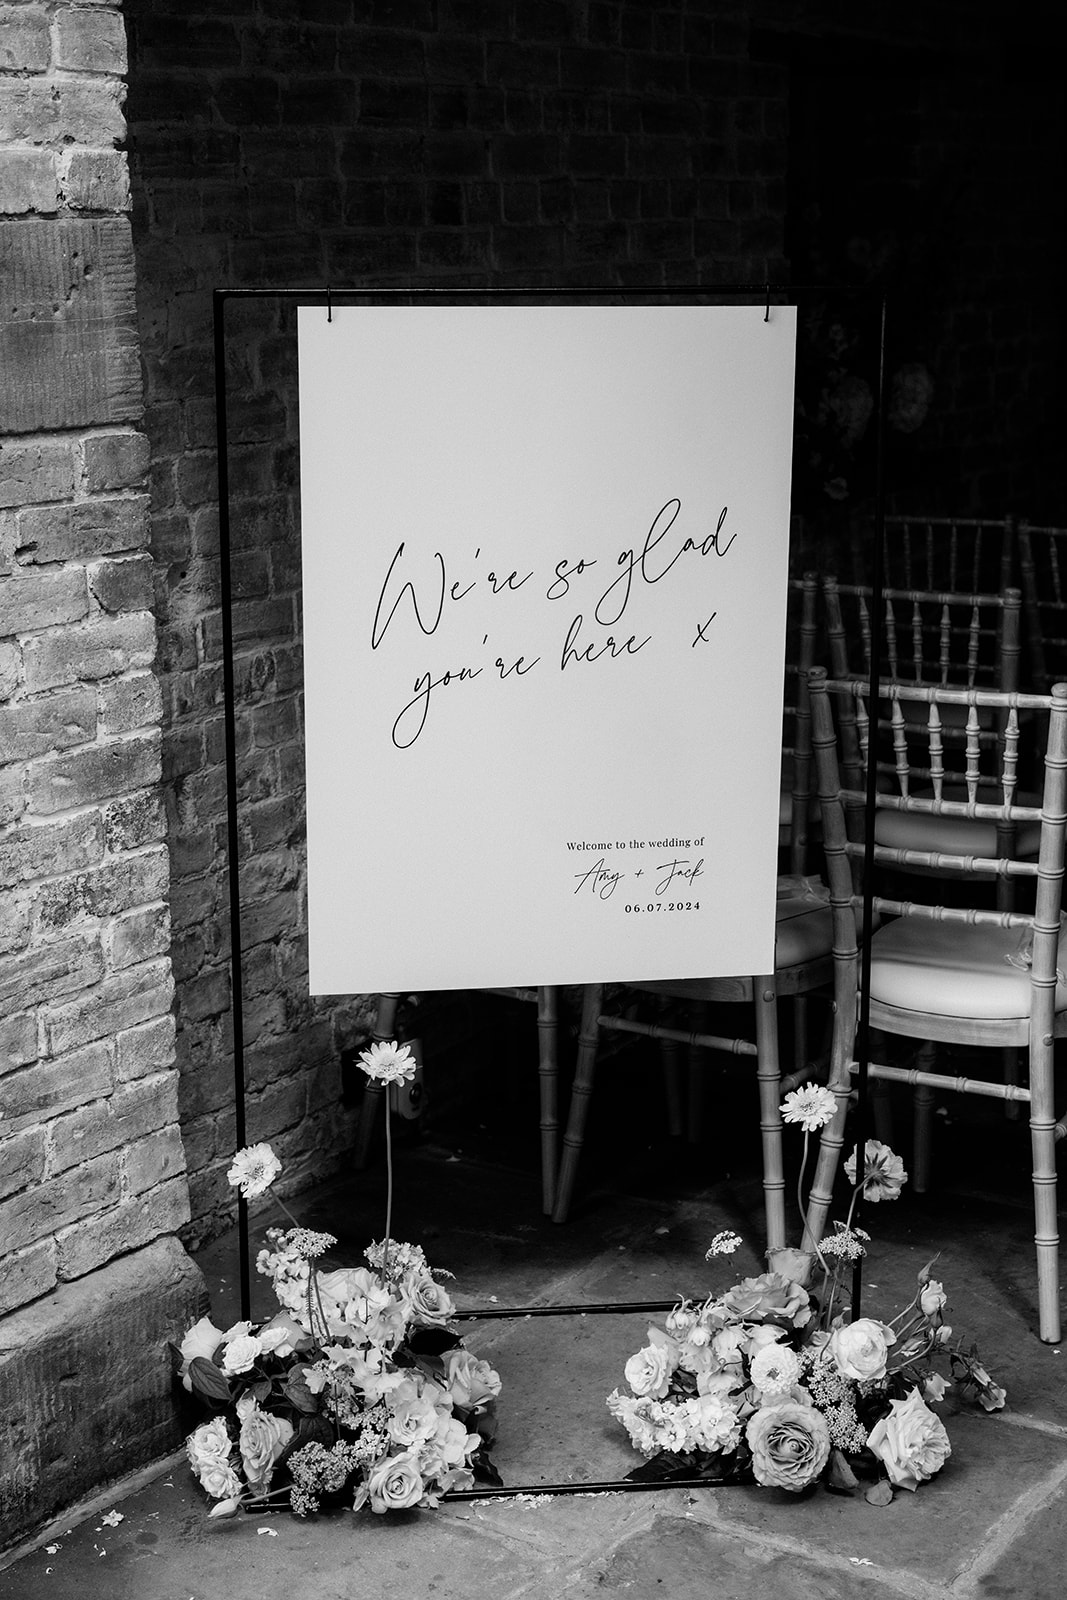 We're so glad
you're here x
Welcome to the wedding of
Amy + Jack
06.07.2024